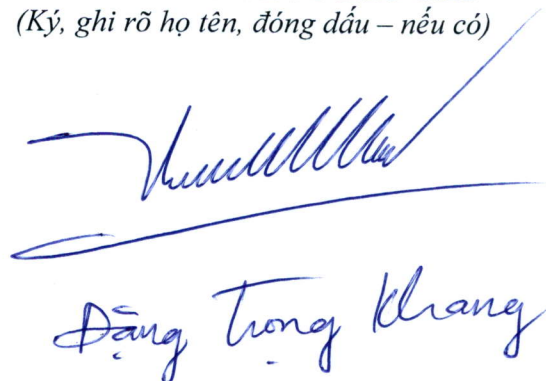 (Ký, ghi rõ họ tên, đóng dấu – nếu có)
Đặng Trọng Khang